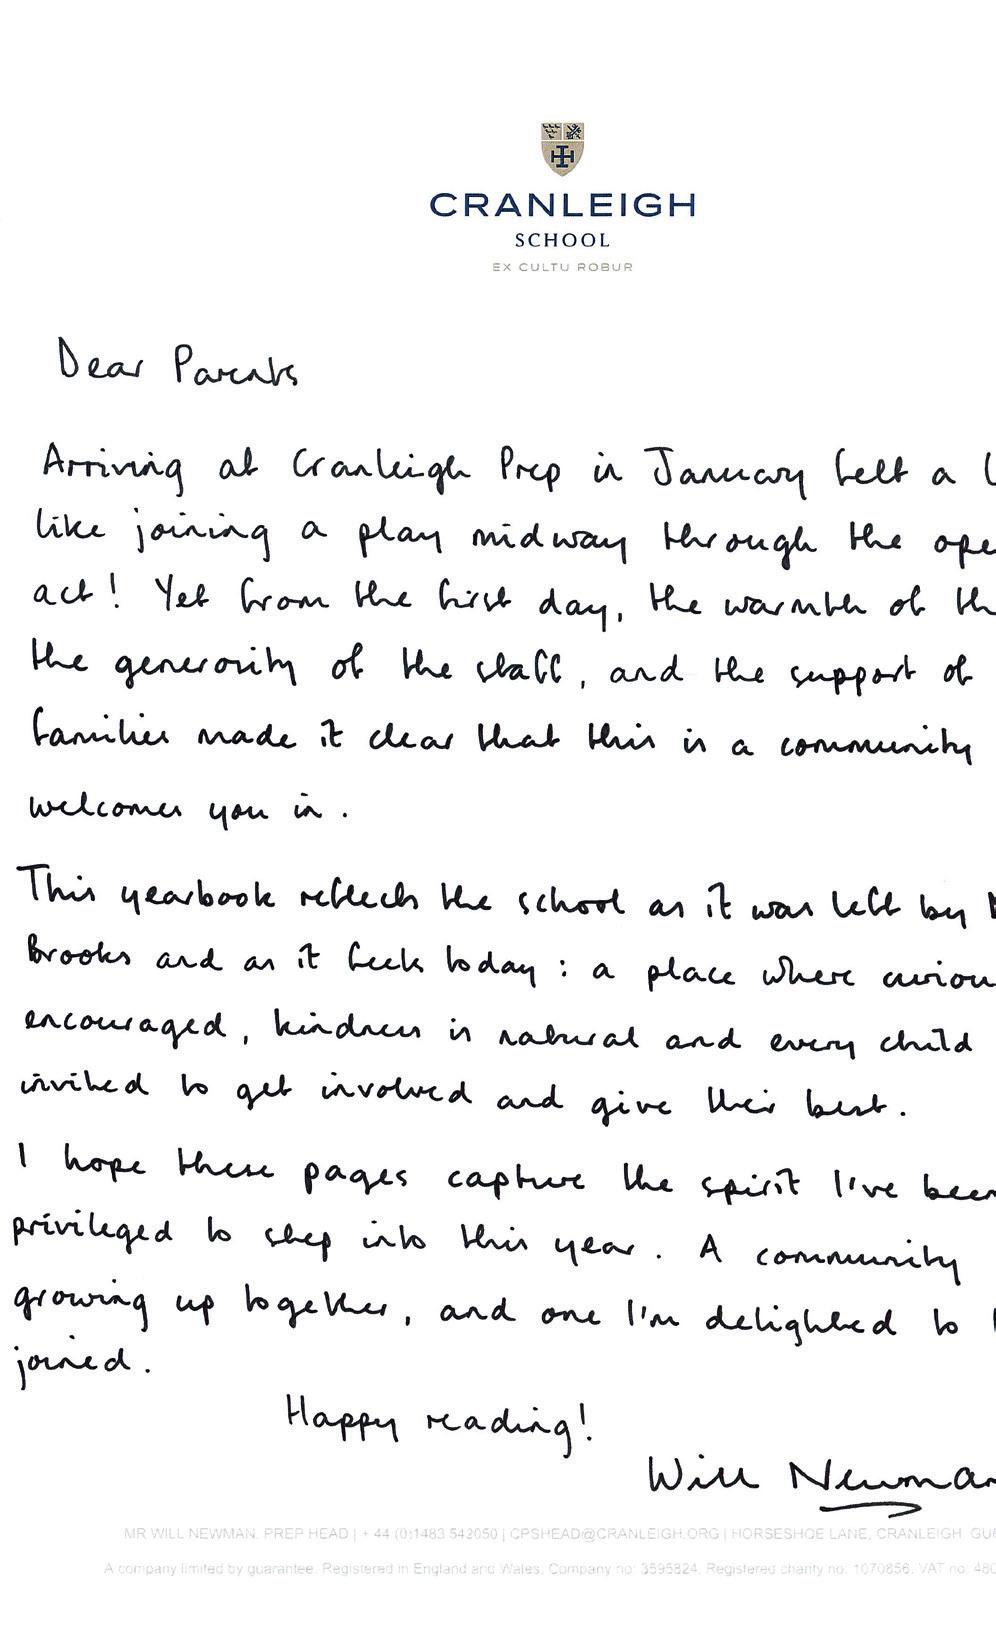 CRANLEIGH
SCHOOL
EX CULTU ROBUR
Dear Parents
Arriving at Cranleigh Prep in January felt a
like joining a play midway through the ope
act! Yet from the first day, the warmth of th
the generosity of the staff, and the support of
families made it clear that this is a community
welcomes you in.
This yearbook reflects the school as it was left by
Brooks and as it feels today: a place where curiou
encouraged, kindness is natural and every child
invited to get involved and give their best.
I hope these pages capture the spirit I've been
privileged to step into this year. A community
growing up together, and one I'm delighted to
joined.
Happy reading!
Will Newman
MR WILL NEWMAN, PREP HEAD | + 44 (0)1483 542050 | CPSHEAD@CRANLEIGH.ORG | HORSESHOE LANE, CRANLEIGH, GU
A company limited by guarantee. Registered in England and Wales. Company no: 3595824. Registered charity no: 1070856. VAT no: 480